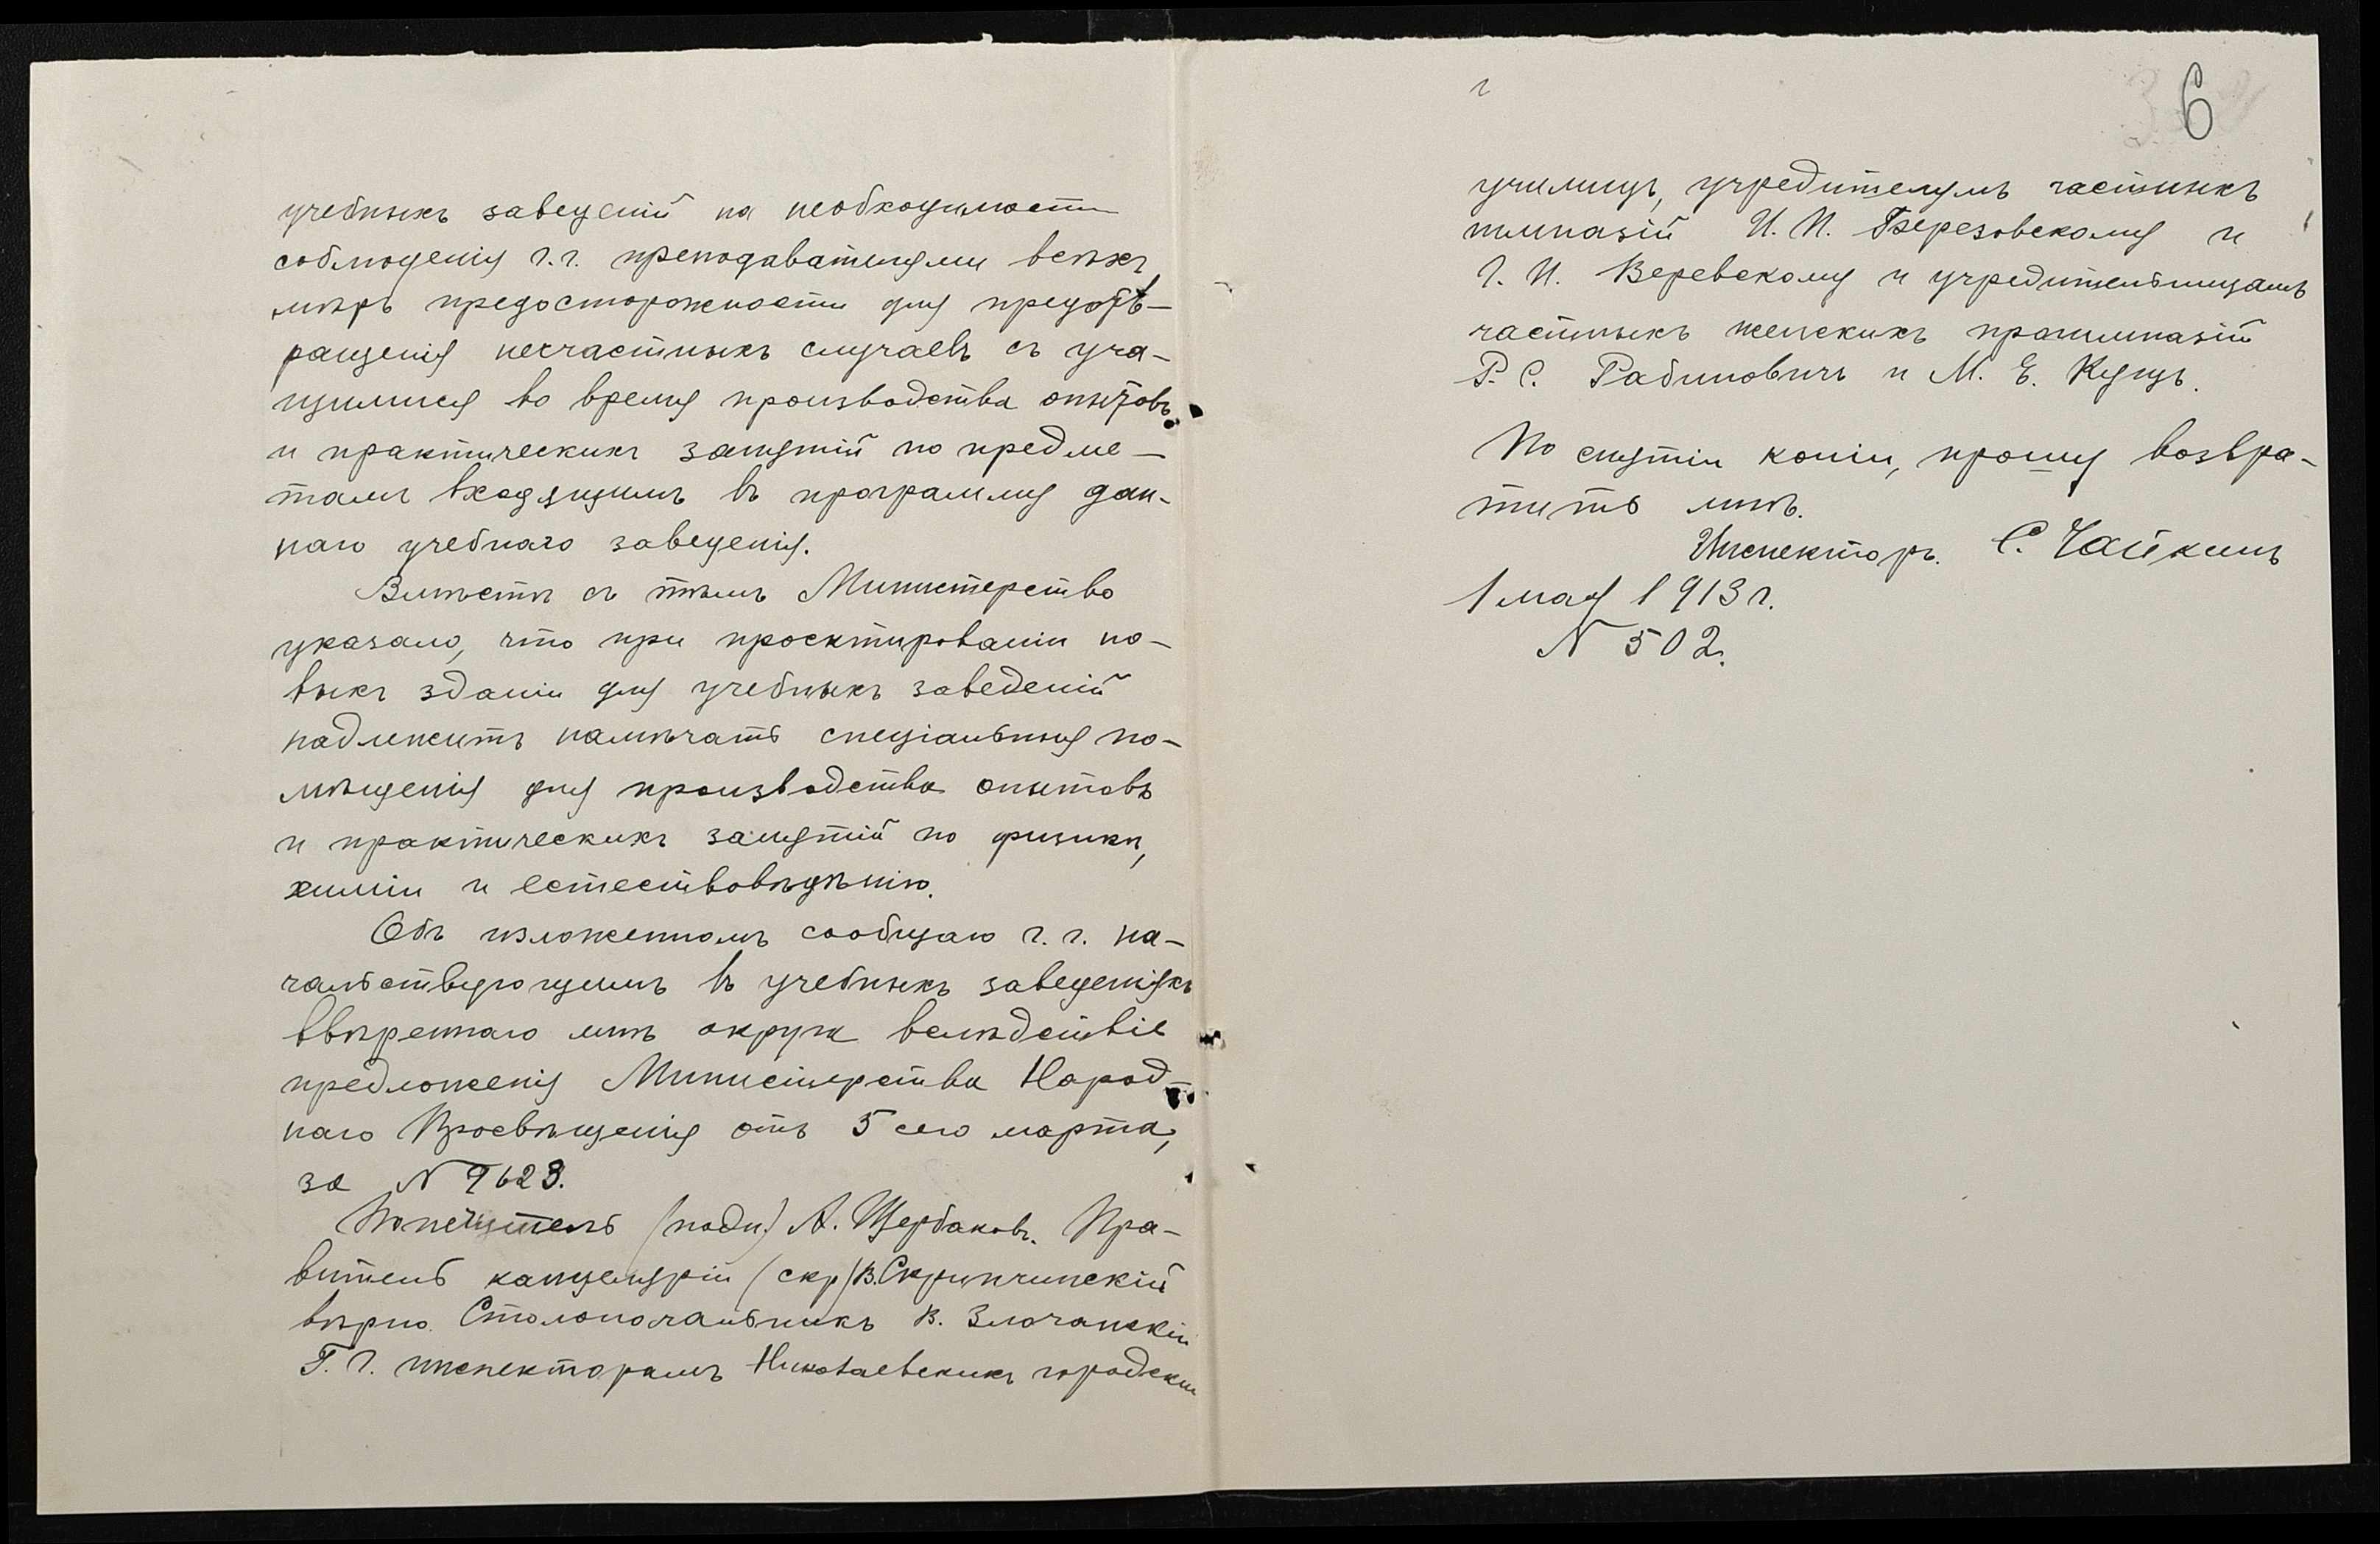 учебныхъ заведеній на необходимость
соблюденія г.г. преподавателями всѣхъ
мѣръ предосторожности для предотв-
ращенія несчастныхъ случаевъ съ уча-
щимися во время производства опытовъ
и практическихъ занятій по предме-
тамъ входящимъ въ программу дан-
наго учебнаго заведенія.
Вмѣстѣ съ тѣмъ Министерство
указало, что при проектированіи но-
выхъ зданіи для учебныхъ заведеній
надлежитъ намѣчать спеціальныя по-
мѣщенія для производства опытовъ
и практическихъ занятій по физикѣ,
химіи и естествовѣдѣнію.
Объ изложенномъ сообщаю г.г. на-
чальствующимъ въ учебныхъ заведеніяхъ
ввѣреннаго мнѣ округа вслѣдствіе
предложенія Министерства Народ-
наго Просвѣщенія отъ 5 сего марта,
за N 9623.
Попечитель (подп.) А. Щербаковъ. Пра-
витель канцеляріи (скр) В. Скрипчинскій
вѣрно. Столоначальникъ В. Злочанскій
Г. Г. инспекторамъ Николаевскихъ городских
6
училищъ, учредителямъ частныхъ
гимназій И. И. Березовскому и
Г. И. Веревскому и учредительницамъ
частныхъ женскихъ прогимназій
Р. С. Рабиновичъ и М. Е. Кущъ.
По снятіи копіи, прошу возвра-
тить мнѣ.
Инспекторъ. С. Чайкинъ
1 мая 1913 г.
N 502.